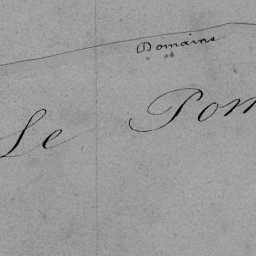 Domaine
Le Pom